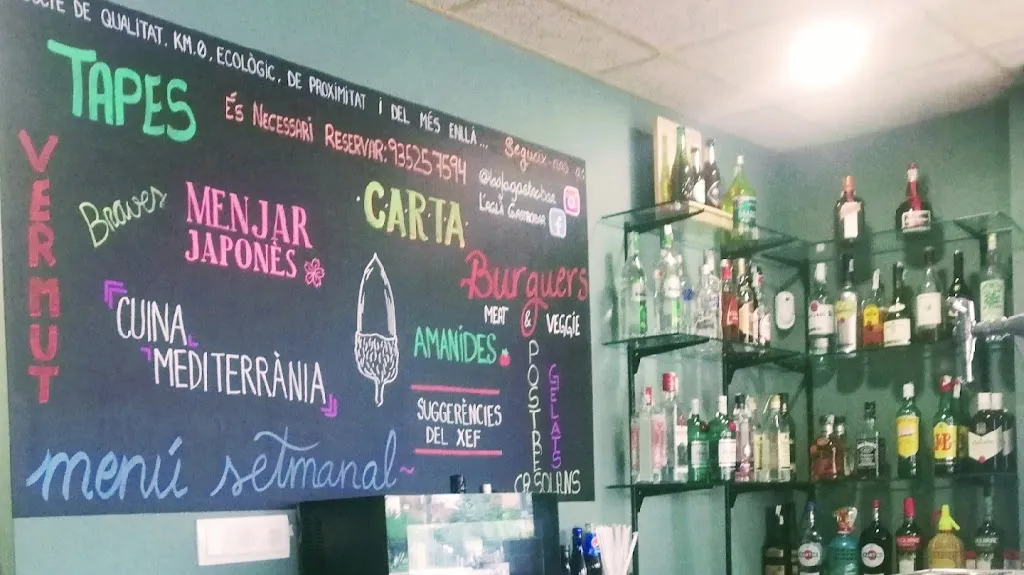 DE QUALITAT, KM.0, ECOLÒGIC, DE PROXIMITAT I DEL MÉS ENLLÀ...
TAPES
ÉS NECESSARI RESERVAR: 935257594
Segueix-nos a:
L'AGLÀ GASTROBAR
VERMUT
Braves
MENJAR
JAPONÈS
CARTA
Burguers
MEAT & VEGGIE
CUINA
MEDITERRÀNIA
AMANIDES
SUGGERÈNCIES
DEL XEF
POSTRES
GELATS
menú setmanal~